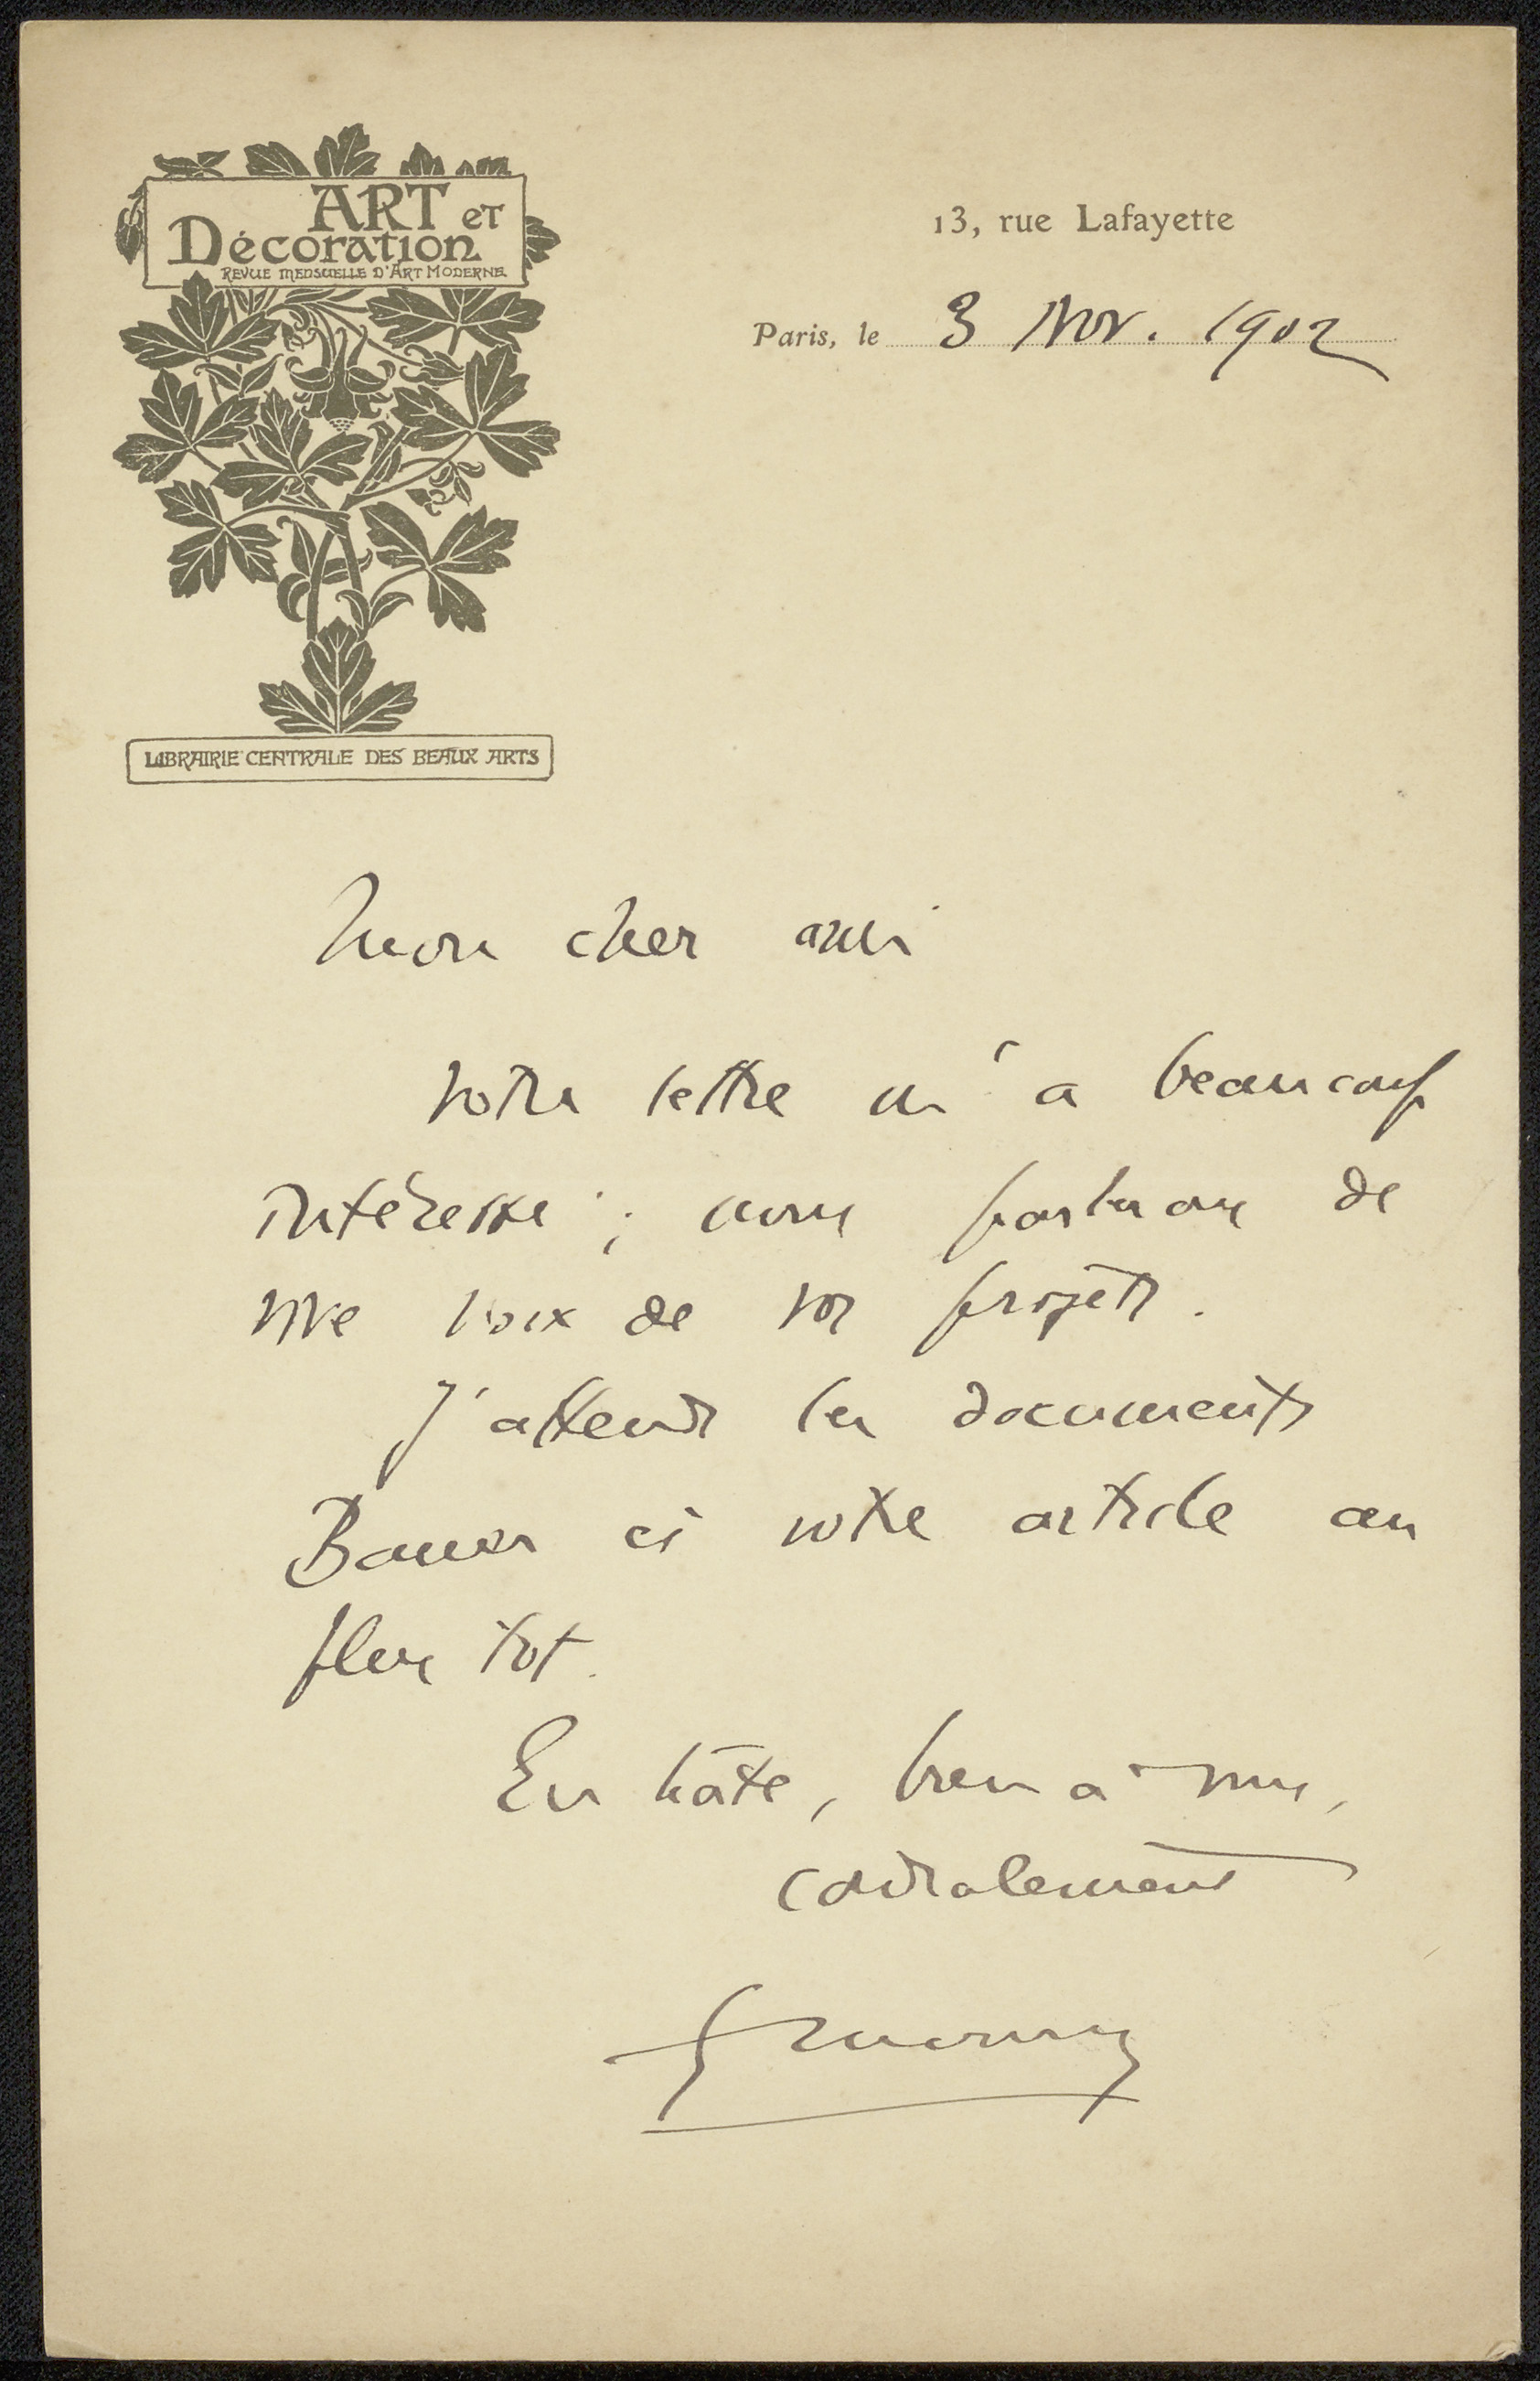 ART ET
Décoration
REVUE MENSUELLE D'ART MODERNE
LIBRAIRIE CENTRALE DES BEAUX ARTS
13, rue Lafayette
Paris, le 3 Nov. 1902
Mon cher ami
Votre lettre m'a beaucoup
intéressé ; nous parlerons de
vive voix de vos projets.
J'attends les documents
Bauer et votre article au
plus tot.
En hâte, bien à vous,
cordialement